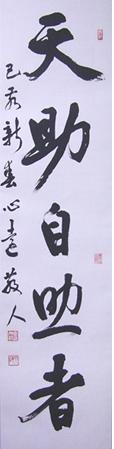 天助自助者
己亥新春心遠散人